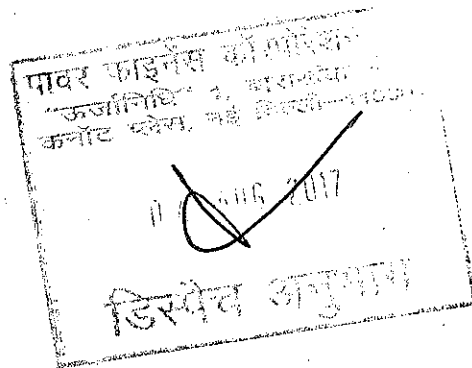 पावर फाइनेंस कॉर्पोरेशन
"ऊर्जानिधि" 1,
कनॉट प्लेस, नई दिल्ली
AUG 2017
डिस्पैच अनुभाग